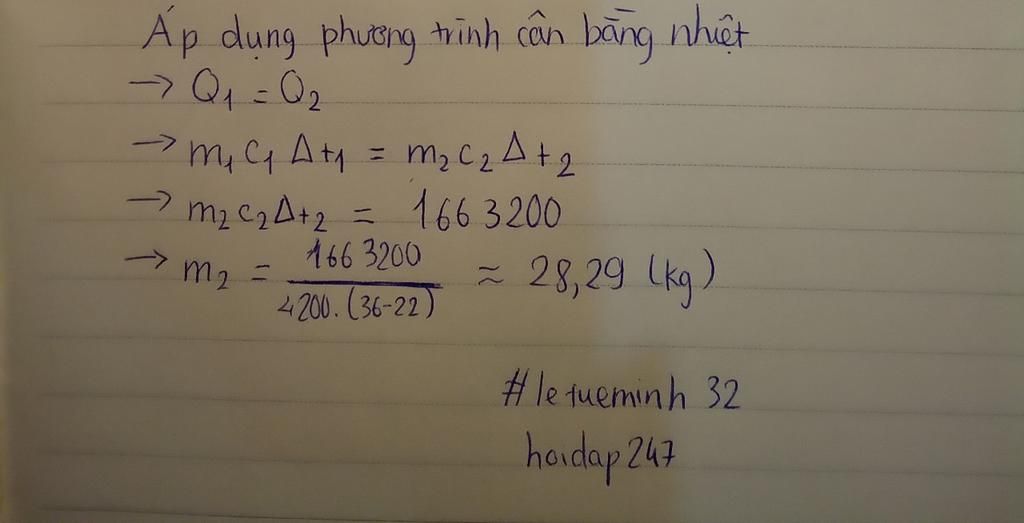 Áp dụng phương trình cân bằng nhiệt
→ Q₁ = Q₂
→ m₁c₁Δt₁ = m₂c₂Δt₂
→ m₂c₂Δt₂ = 1663200
→ m₂ = 1663200 / 4200.(36-22) ≈ 28,29 (kg)
#letueminh 32
hoidap247